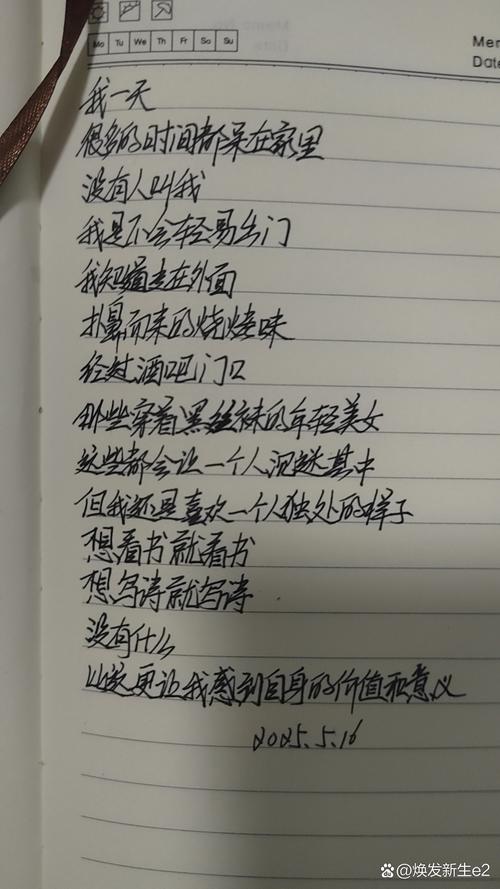 Mo Tu We Th Fr Sa Su
Memo No.
Mem
Date
我一天
很多的时间都呆在家里
没有人叫我
我是不会轻易出门
我知道走在外面
扑鼻而来的烧烤味
经过酒吧门口
那些穿着黑丝袜的年轻美女
这些都会让一个人沉迷其中
但我还是喜欢一个人独处的样子
想看书就看书
想写诗就写诗
没有什么
比这更让我感到自身的价值和意义
2025.5.16
焕发新生e2